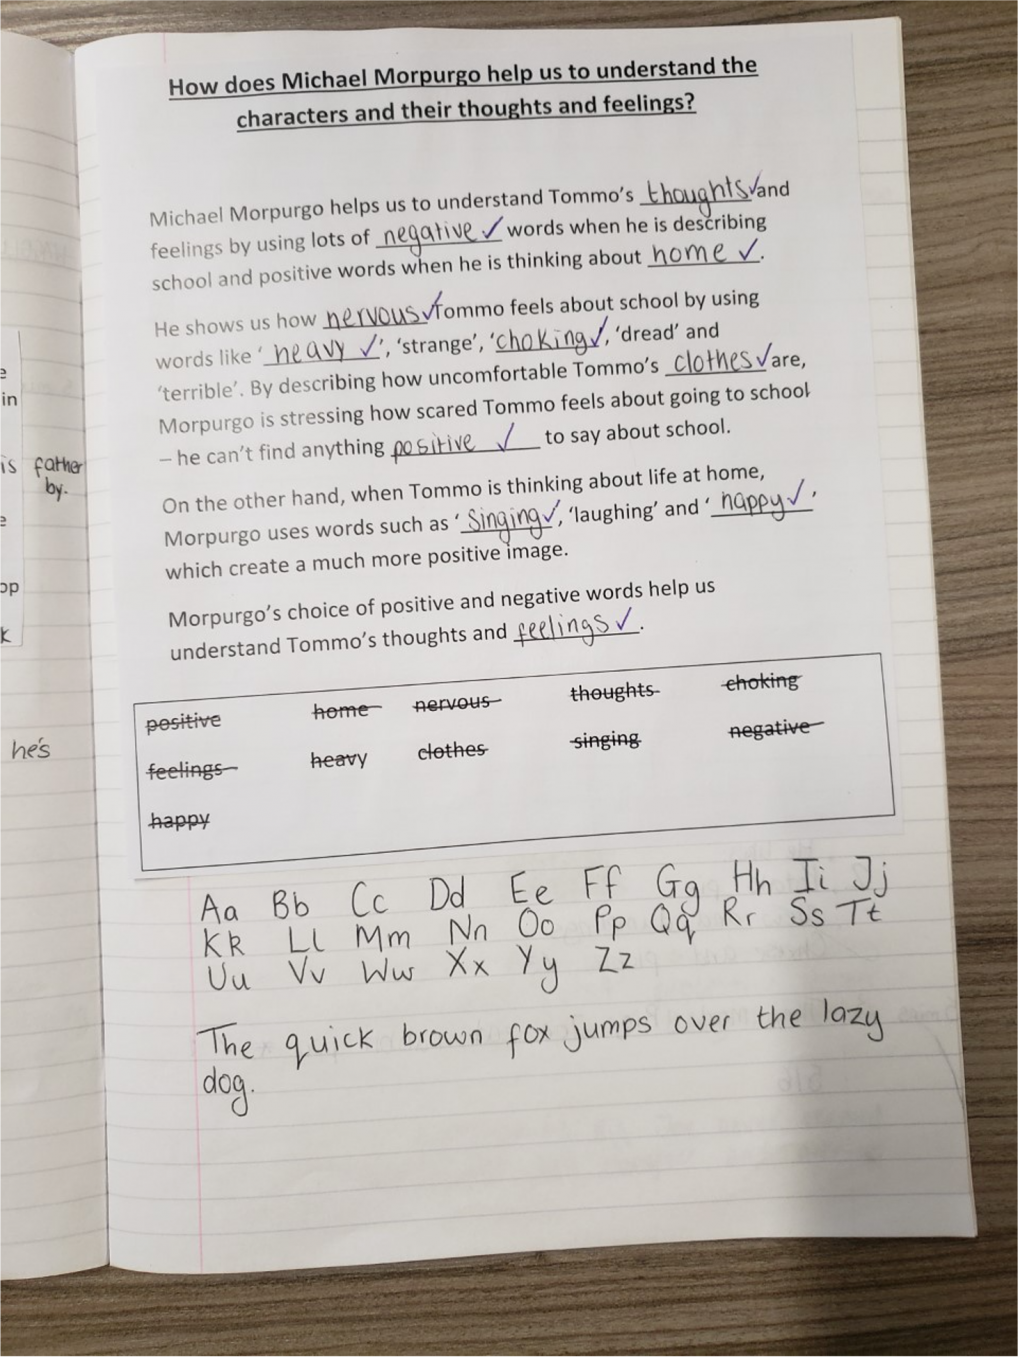 How does Michael Morpurgo help us to understand the
characters and their thoughts and feelings?
Michael Morpurgo helps us to understand Tommo's thoughts and
feelings by using lots of negative words when he is describing
school and positive words when he is thinking about home.
He shows us how nervous Tommo feels about school by using
words like 'heavy', 'strange', 'choking', 'dread' and
'terrible'. By describing how uncomfortable Tommo's clothes are,
Morpurgo is stressing how scared Tommo feels about going to school
– he can't find anything positive to say about school.
On the other hand, when Tommo is thinking about life at home,
Morpurgo uses words such as 'singing', 'laughing' and 'happy'
which create a much more positive image.
Morpurgo's choice of positive and negative words help us
understand Tommo's thoughts and feelings.
positive home nervous thoughts choking
feelings heavy clothes singing negative
happy
Aa Bb Cc Dd Ee Ff Gg Hh Ii Jj
Kk Ll Mm Nn Oo Pp Qq Rr Ss Tt
Uu Vv Ww Xx Yy Zz
The quick brown fox jumps over the lazy
dog.
in
is father
by.
he's